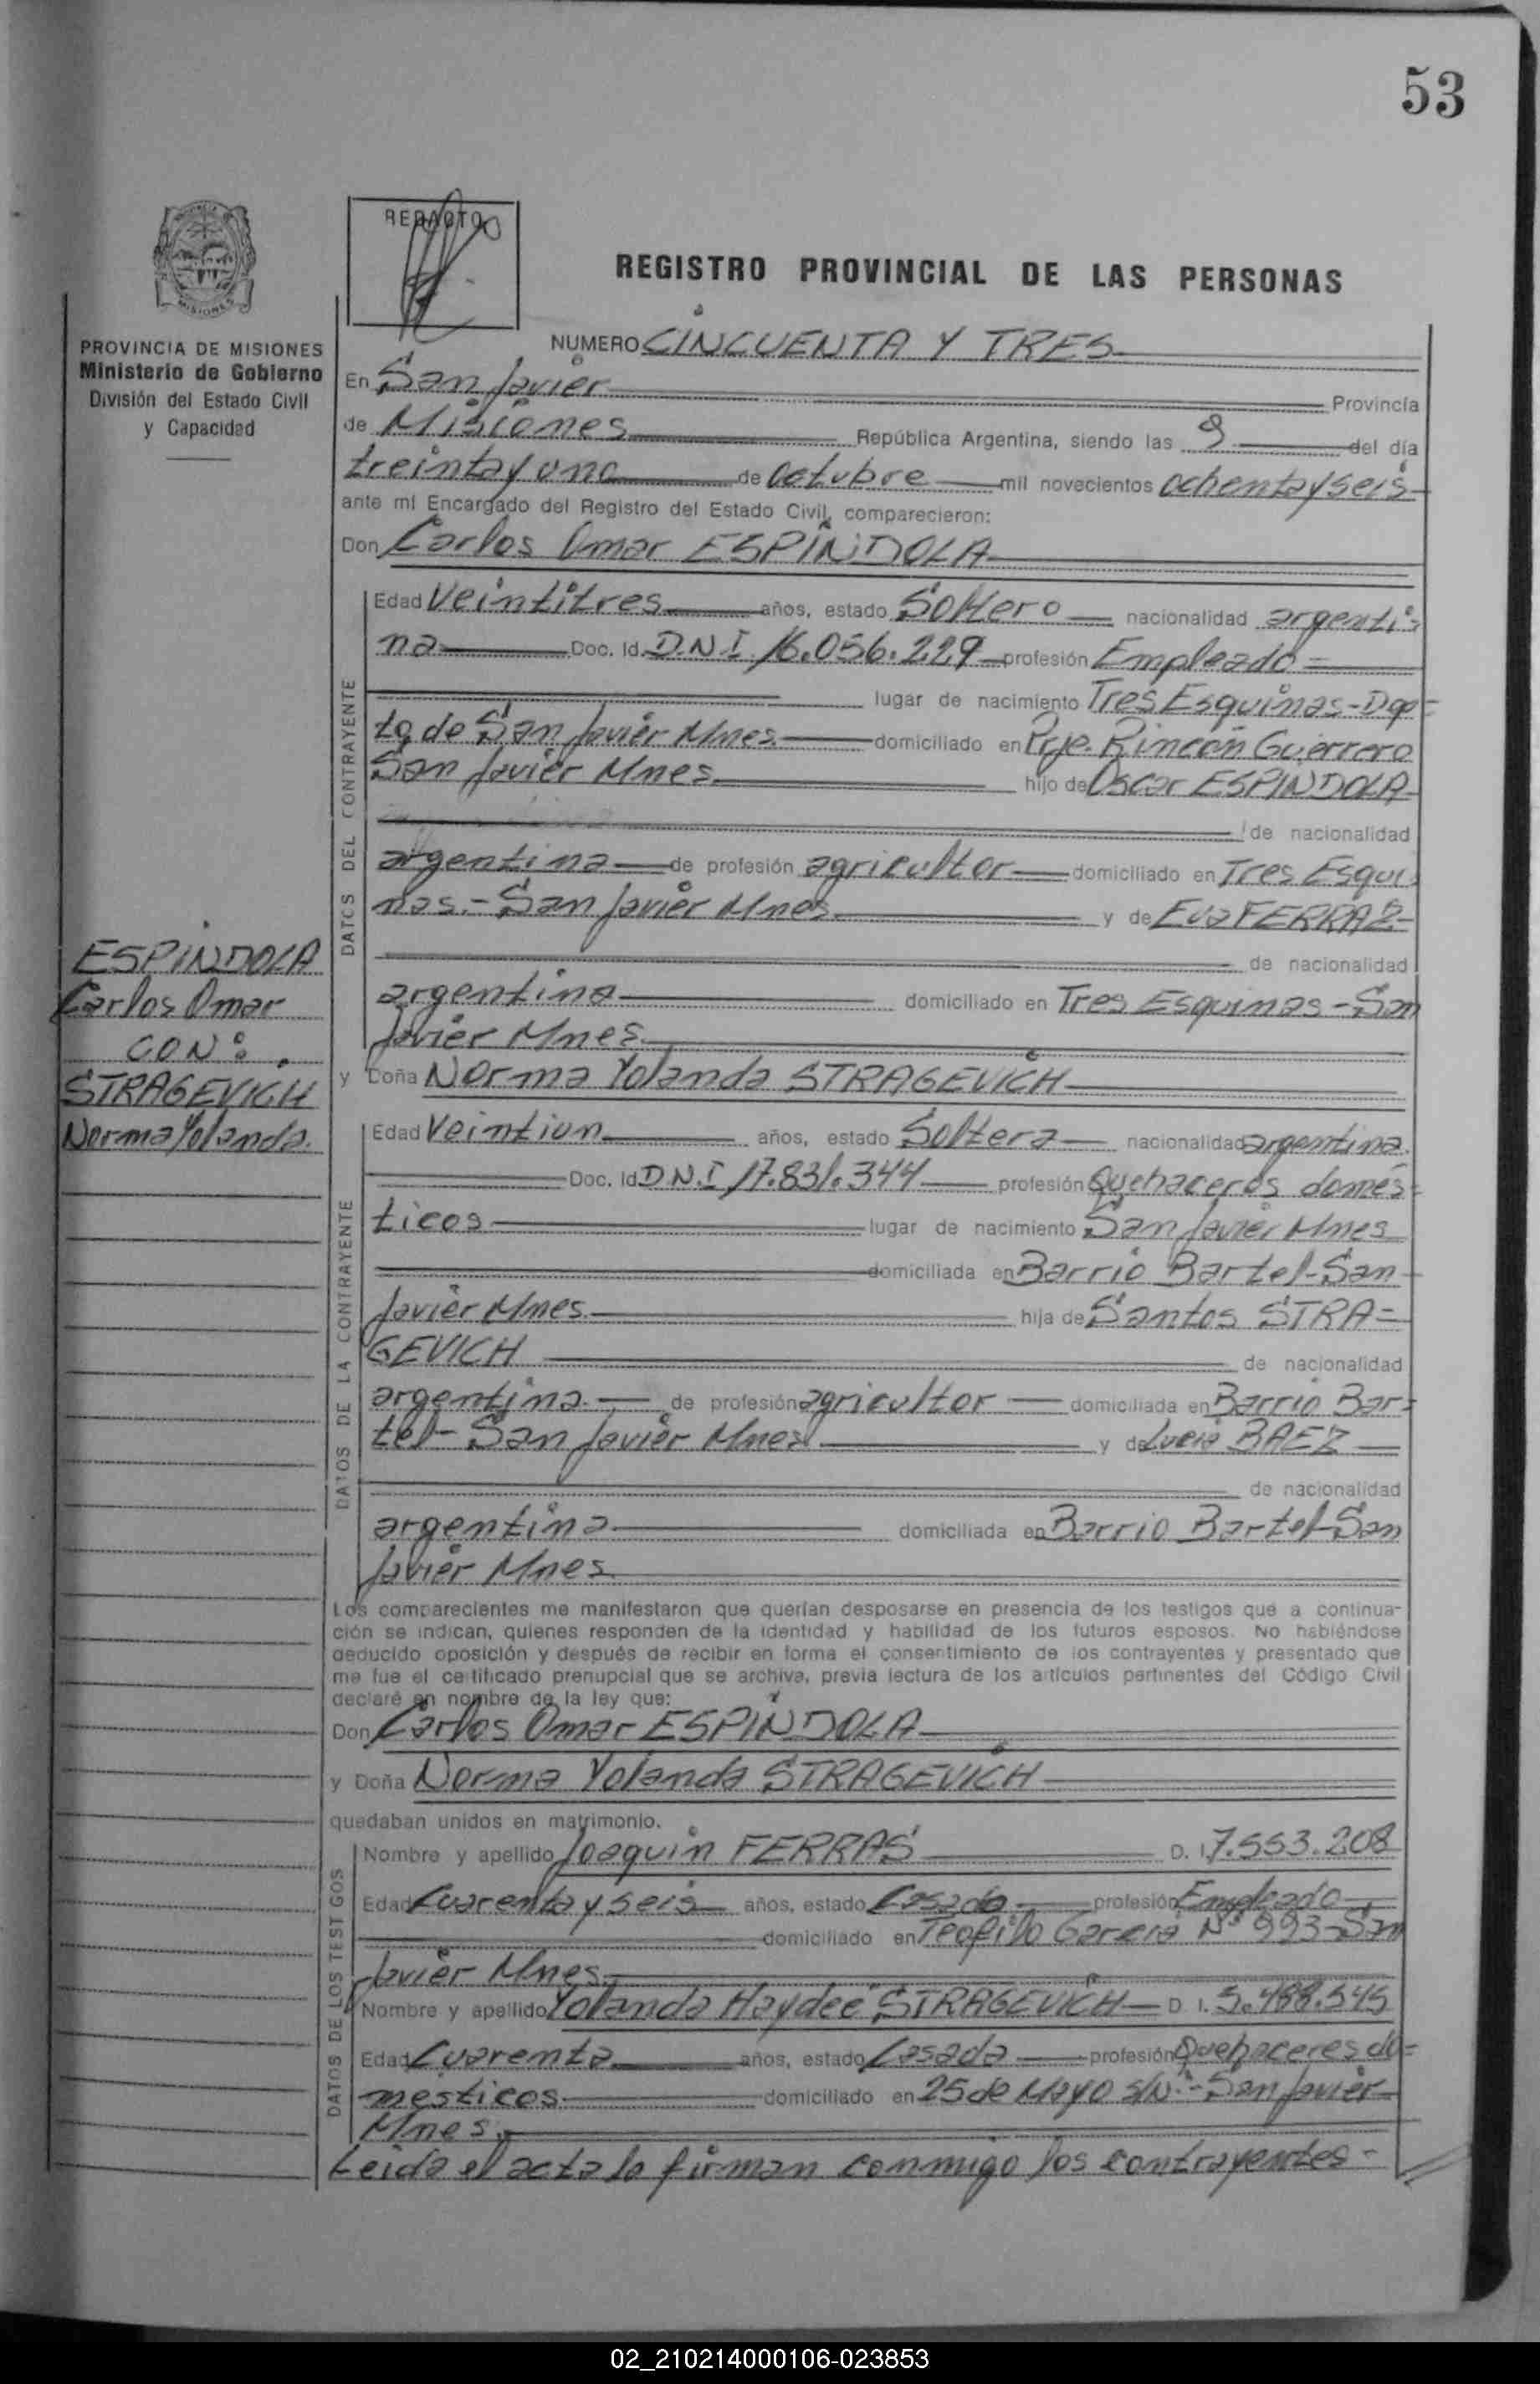 53
REDACTO
REGISTRO PROVINCIAL DE LAS PERSONAS
MISIONES
PROVINCIA DE MISIONES
Ministerio de Gobierno
División del Estado Civil
y Capacidad
NUMERO CINCUENTA Y TRES
En San Javier Provincia
de Misiones República Argentina, siendo las 9 del día
treinta y uno de octubre mil novecientos ochenta y seis
ante mí Encargado del Registro del Estado Civil, comparecieron:
Don Carlos Omar ESPINDOLA
DATOS DEL CONTRAYENTE
Edad Veintitres años, estado Soltero nacionalidad argenti=
na Doc. Id. D.N.I 16.056.229 profesión Empleado=
lugar de nacimiento Tres Esquinas-Dep=
to, de San Javier Mnes. domiciliado en Pje. Rincón Guerrero
San Javier Mnes. hijo de Oscar ESPINDOLA
de nacionalidad
argentina de profesión agricultor domiciliado en Tres Esqui
nas.- San Javier Mnes. y de Eva FERRAZ
de nacionalidad
argentina domiciliado en Tres Esquinas-San
Javier Mnes.
ESPINDOLA
Carlos Omar
CON:
STRAGEVICH
Norma Yolanda.
y Doña Norma Yolanda STRAGEVICH
DATOS DE LA CONTRAYENTE
Edad Veintiun años, estado Soltera nacionalidad argentina.
Doc. Id D.N.I 17.831.344 profesión Quehaceros domés=
ticos lugar de nacimiento San Javier Mnes
domiciliada en Barrio Bartel-San
Javier Mnes. hija de Santos STRA=
GEVICH de nacionalidad
argentina.- de profesión agricultor domiciliada en Barrio Bar=
tel- San Javier Mnes y de Lucia BAEZ
de nacionalidad
argentina domiciliada en Barrio Bartel-San
Javier Mnes.
Los comparecientes me manifestaron que querían desposarse en presencia de los testigos que a continua-
ción se indican, quienes responden de la identidad y habilidad de los futuros esposos. No habiéndose
deducido oposición y después de recibir en forma el consentimiento de los contrayentes y presentado que
me fue el certificado prenupcial que se archiva, previa lectura de los artículos pertinentes del Código Civil
declaré en nombre de la ley que:
Don Carlos Omar ESPINDOLA
y Doña Norma Yolanda STRAGEVICH
quedaban unidos en matrimonio.
DATOS DE LOS TESTIGOS
Nombre y apellido Joaquin FERRAS D. I. 7.553.208
Edad Cuarenta y seis años, estado Casado profesión Empleado
domiciliado en Teofilo Garcia N° 993-San
Javier Mnes.
Nombre y apellido Yolanda Haydee STRAGEVICH D. I. 5.488.545
Edad Cuarenta años, estado Casada profesión Quehaceres do=
mesticos domiciliado en 25 de Mayo S/N°- San Javier
Mnes.
Leida el acta la firman conmigo los contrayentes-
02_210214000106-023853